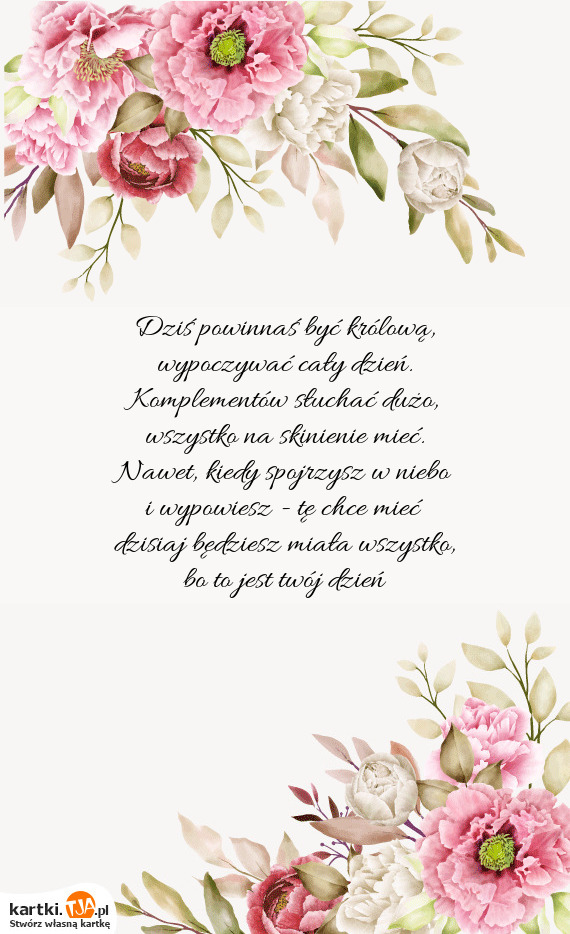 Dziś powinnaś być królową,
wypoczywać cały dzień.
Komplementów słuchać dużo,
wszystko na skinienie mieć.
Nawet, kiedy spojrzysz w niebo
i wypowiesz - tę chce mieć
dzisiaj będziesz miała wszystko,
bo to jest twój dzień
kartki.TJA.pl
Stwórz własną kartkę